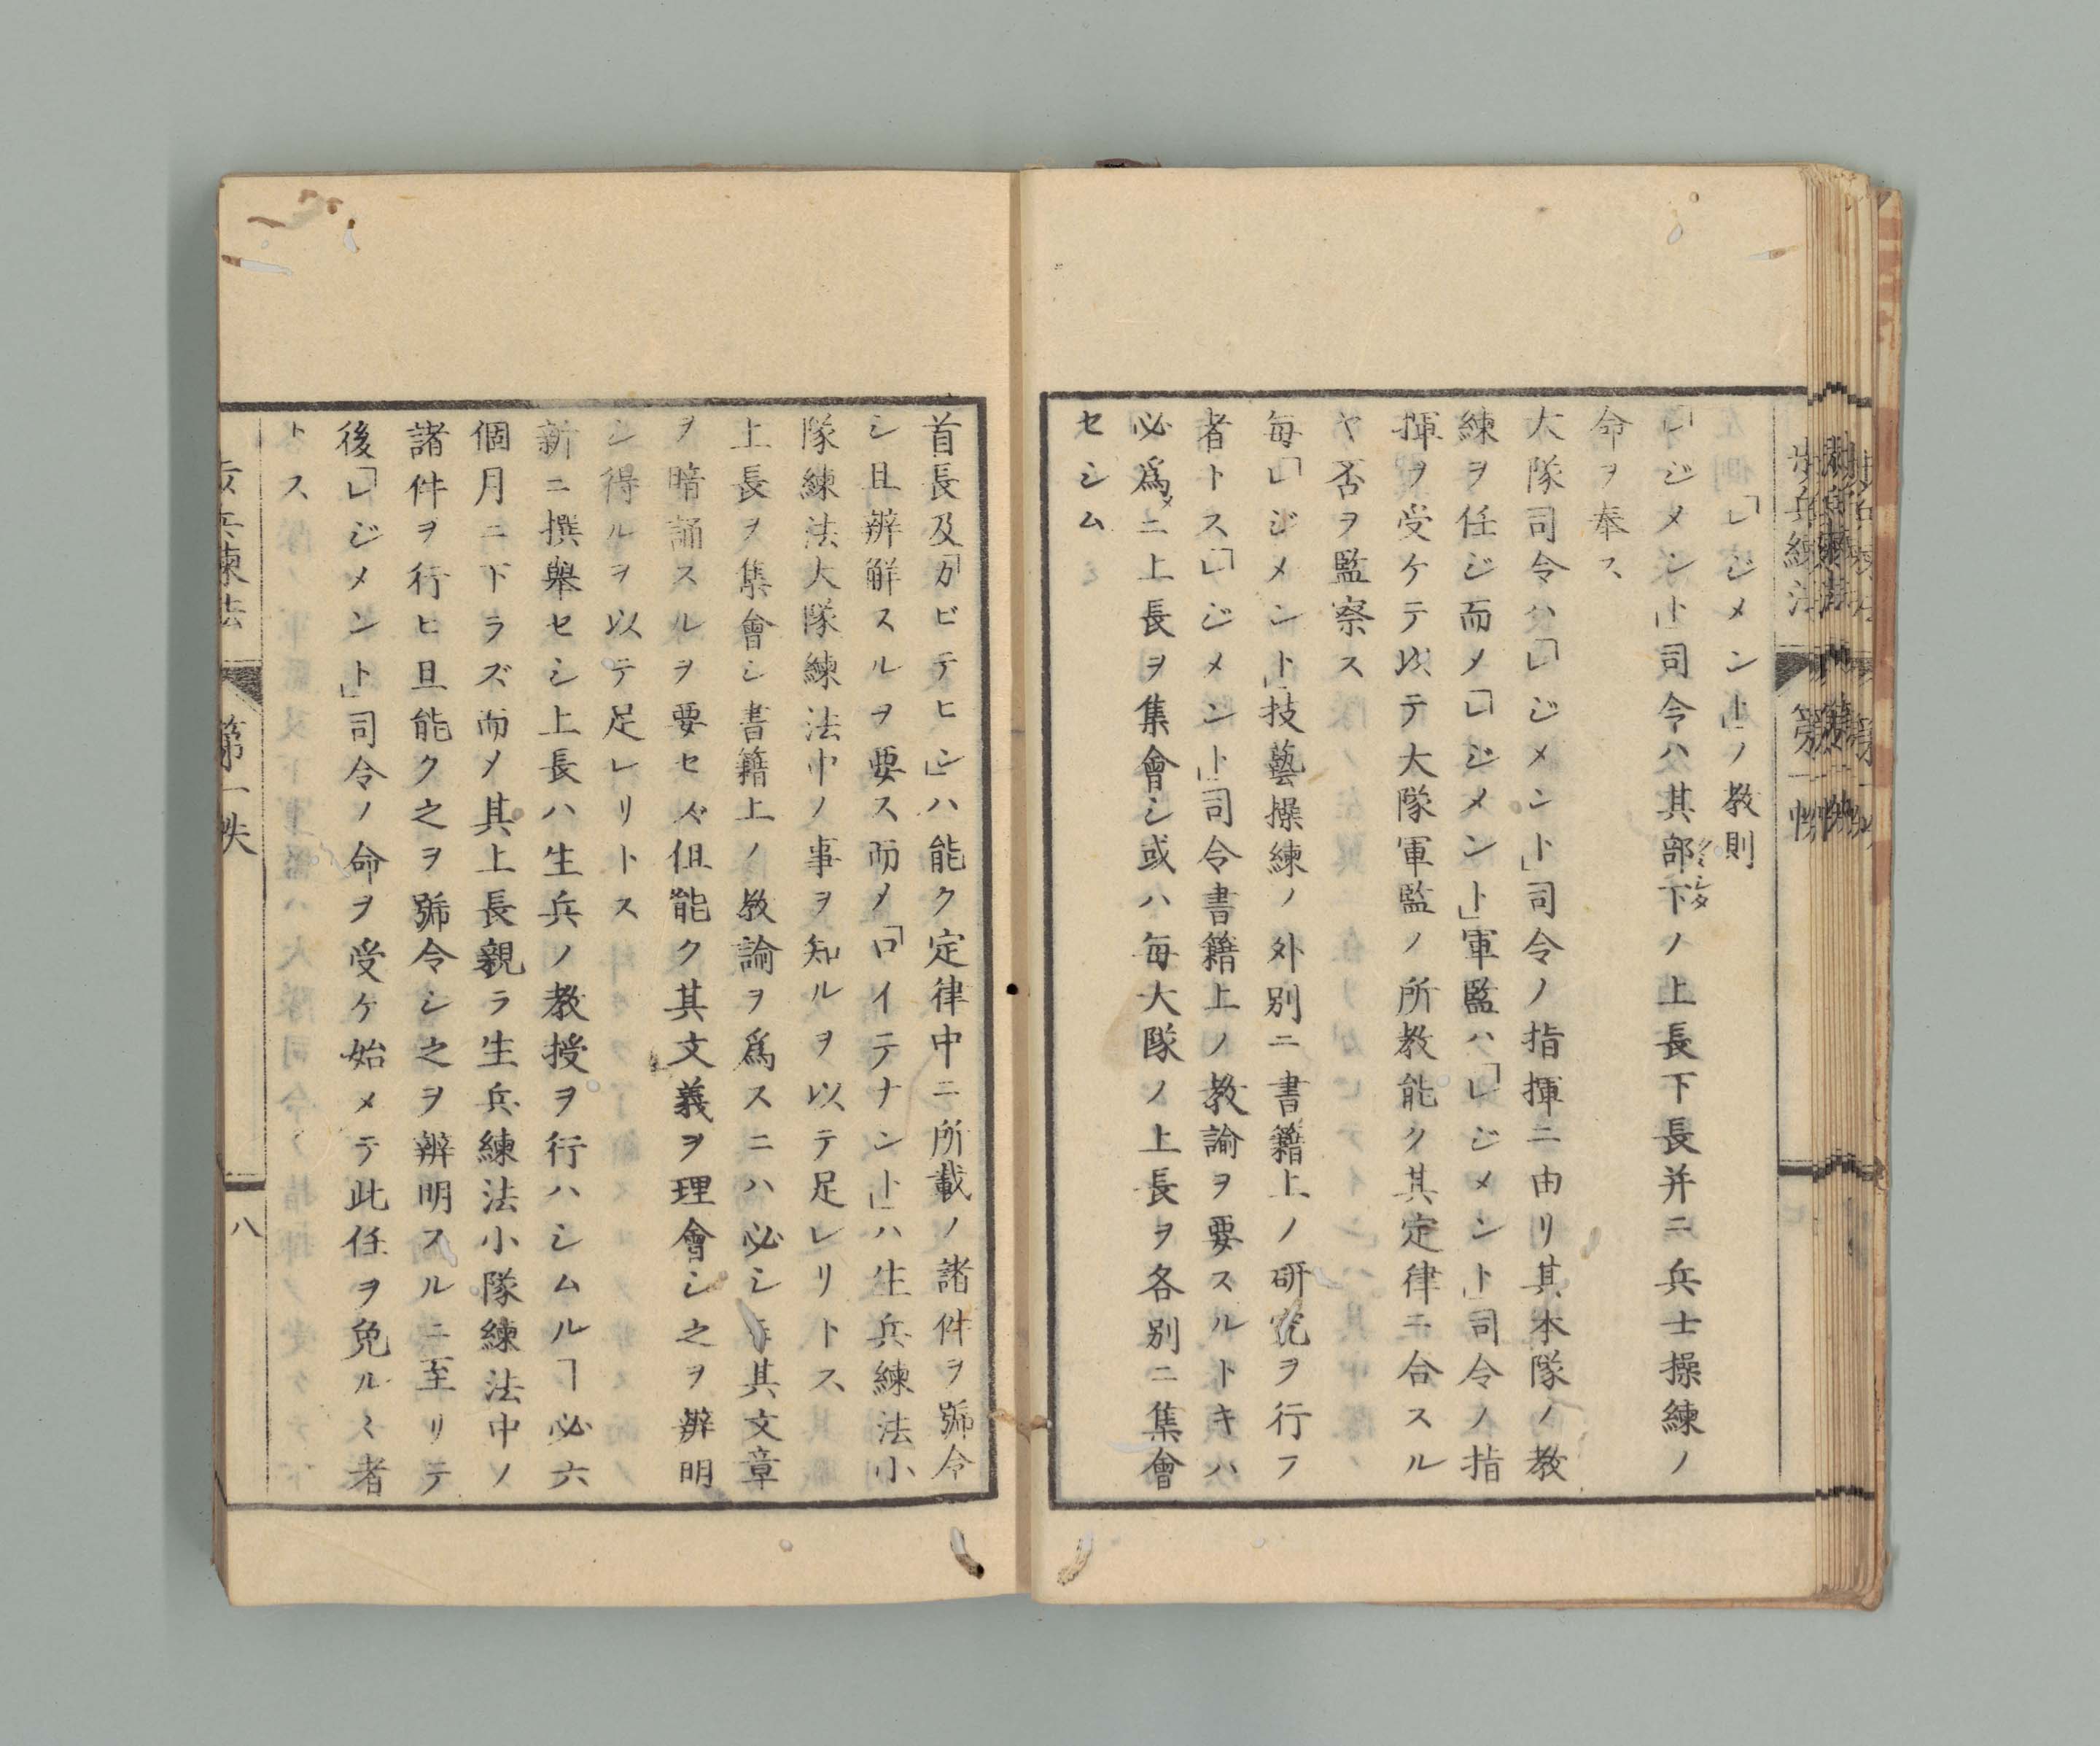 「レジメント」ノ教則
「レジメント」司令ハ其部下ノ上長下長并ニ兵士操練ノ
命ヲ奉ス
大隊司令ハ「レジメント」司令ノ指揮ニ由リ其本隊ノ教
練ヲ任ジ而メ「レジメント」軍監ハ「レジメント」司令ノ指
揮ヲ受ケテ以テ大隊軍監ノ所教能ク其定律ニ合スル
ヤ否ヲ監察ス
毎「レジメント」技藝操練ノ外別ニ書籍上ノ研究ヲ行フ
者トス「レジメント」司令書籍上ノ教諭ヲ要スルトキハ
必爲メニ上長ヲ集會シ或ハ毎大隊ノ上長ヲ各別ニ集會
セシム
首長及「カビテヒン」ハ能ク定律中ニ所載ノ諸件ヲ號令
シ且辨解スルヲ要ス而メ「ロイテナント」ハ生兵練法小
隊練法大隊練法中ノ事ヲ知ルヲ以テ足レリトス
上長ヲ集會シ書籍上ノ教諭ヲ爲スニハ必シモ其文章
ヲ暗誦スルヲ要セズ但能ク其文義ヲ理會シ之ヲ辨明
シ得ルヲ以テ足レリトス
新ニ撰舉セシ上長ハ生兵ノ教授ヲ行ハシムルヿ必六
個月ニ下ラズ而メ其上長親ラ生兵練法小隊練法中ノ
諸件ヲ行ヒ且能ク之ヲ號令シ之ヲ辨明スルニ至リテ
後「レジメント」司令ノ命ヲ受ケ始メテ此任ヲ免ルヽ者
トス
歩兵練法 第一帙 八